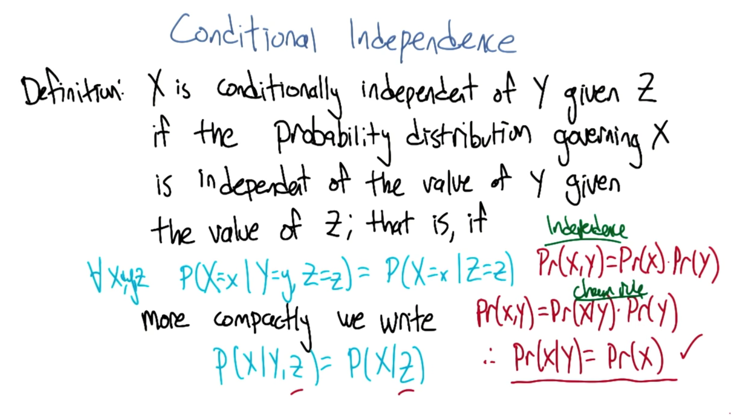 Conditional Independence
Definition: X is conditionally independent of Y given Z
if the probability distribution governing X
is independent of the value of Y given
the value of Z; that is, if
∀x,y,z P(X=x|Y=y, Z=z) = P(X=x|Z=z)
more compactly we write
P(X|Y,Z) = P(X|Z)
Independence
Pr(X,Y)=Pr(X)·Pr(Y)
chain rule
Pr(X,Y)=Pr(X|Y)·Pr(Y)
∴ Pr(X|Y)= Pr(X) ✓